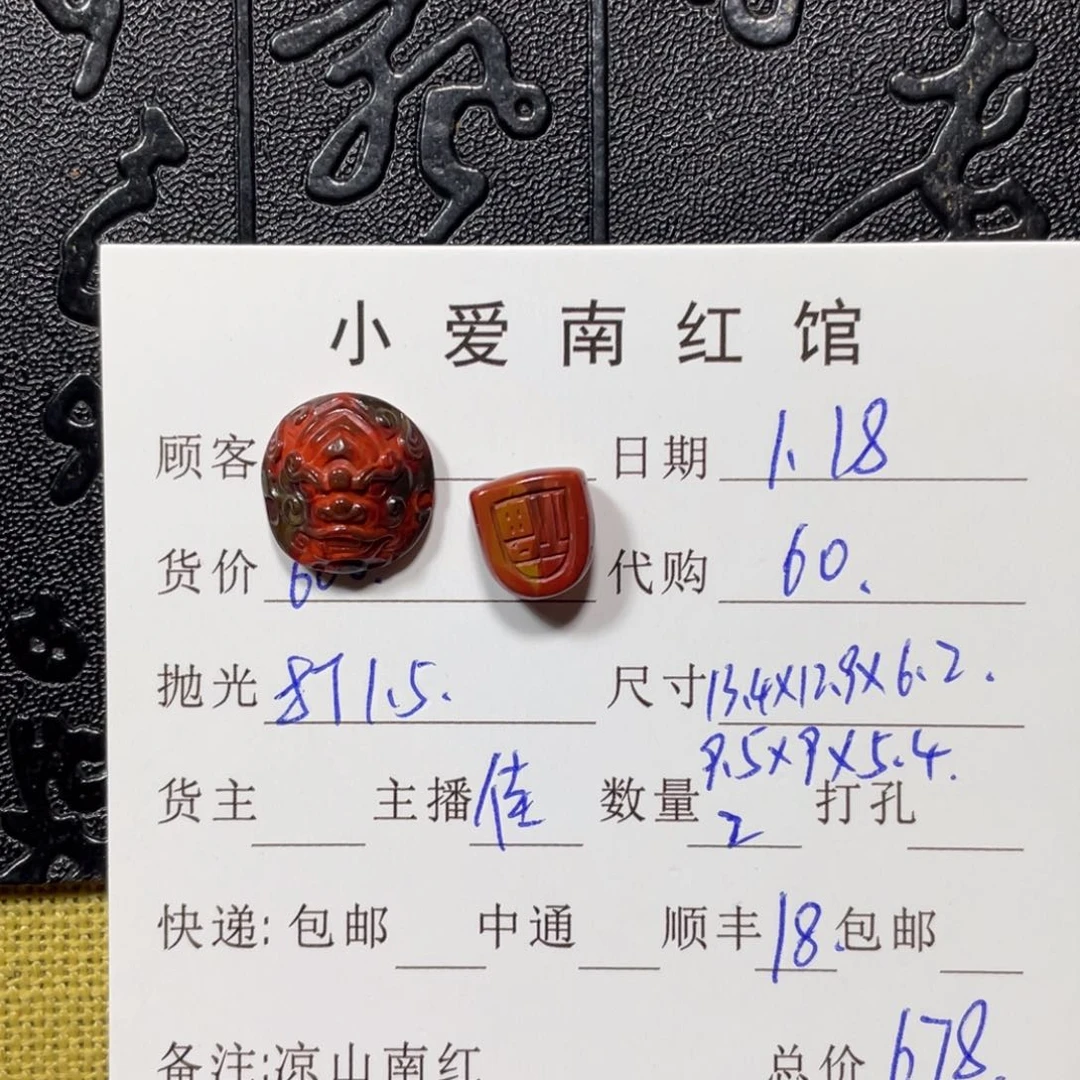 小爱南红馆
顾客 日期 1.18
货价 600. 代购 60.
抛光 尺寸 13.4X12.9X6.2.
9.5X9X5.4.
货主 主播 佳 数量 2 打孔
快递: 包邮 中通 顺丰 18. 包邮
备注:凉山南红 总价 678.